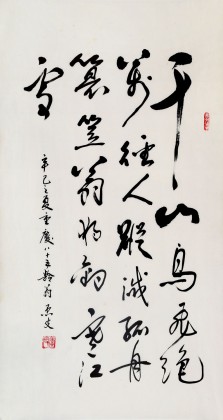 千山鳥飛絕
萬徑人蹤滅孤舟
蓑笠翁獨釣寒江
雪
辛巳之夏重慶八十五齡翁